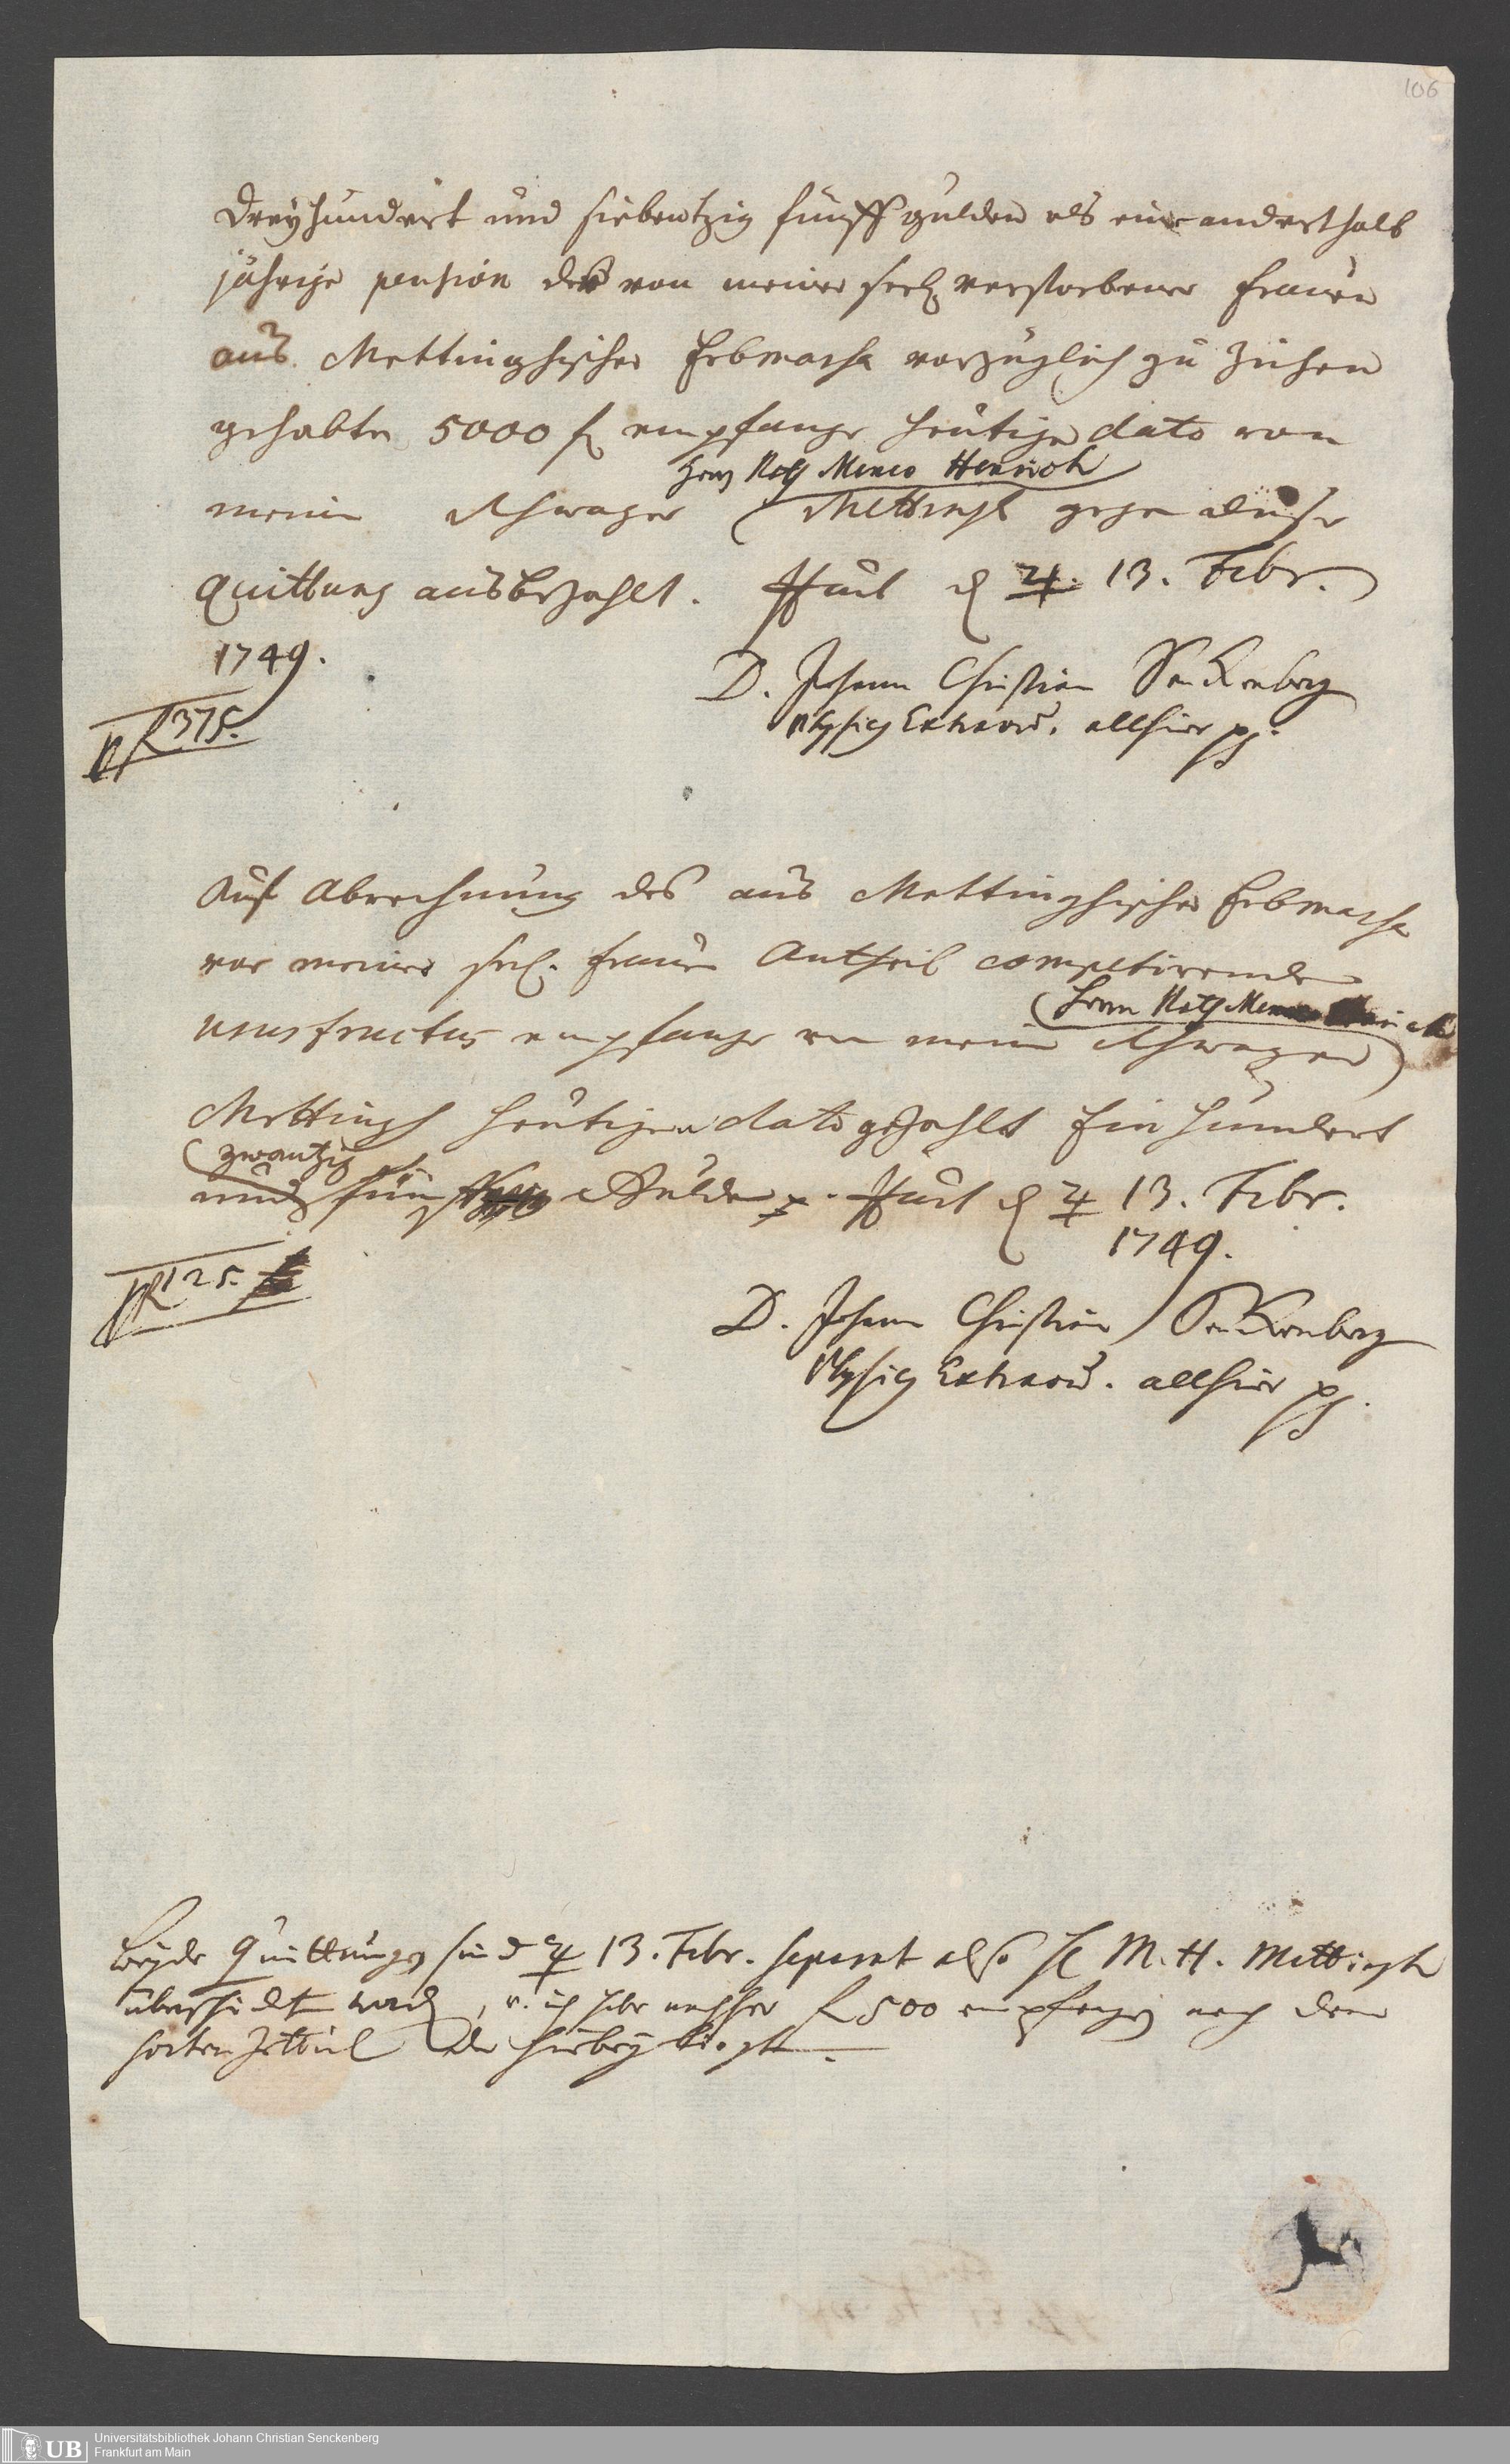 106
Dreyhundert und siebentzig fünff gulden als eine anderthalb
jährige pension der von meiner seel. verstorbener Frauen
aus Mettinghischer Erbmassa vorzüglich zu ziehen
gehabte 5000 f empfange heutige dato von
Herrn Rath Meneo Henrich
meinem Schwager Mettingh gegen diese
Quittung ausbezahlt. Ffurt d ♃ 13. Febr.
1749.
D. Johann Christian Senckenberg
Physicus Extraord. allhier
f 375.
Auf Abrechnung des aus Mettinghischer Erbmassa
vor meiner seel. Frauen Antheil competirende
Herrn Rath
usus fructus empfange von meinem Schwager
Mettingh heutigen dato gezahlt Ein hundert
zwantzig
und fünf Gulden. Ffurt d ♃ 13. Febr.
1749.
f 125.
D. Johann Christian Senckenberg
Physicus Extraord. allhier
Beyde Quittungen sind ♃ 13. Febr. separat also H M. H. Mettingh
überschickt worden, u. ich habe nachher f 500 empfangen nach dem
sorten Zettul der hiebey liegt.
UB
Universitätsbibliothek Johann Christian Senckenberg
Frankfurt am Main